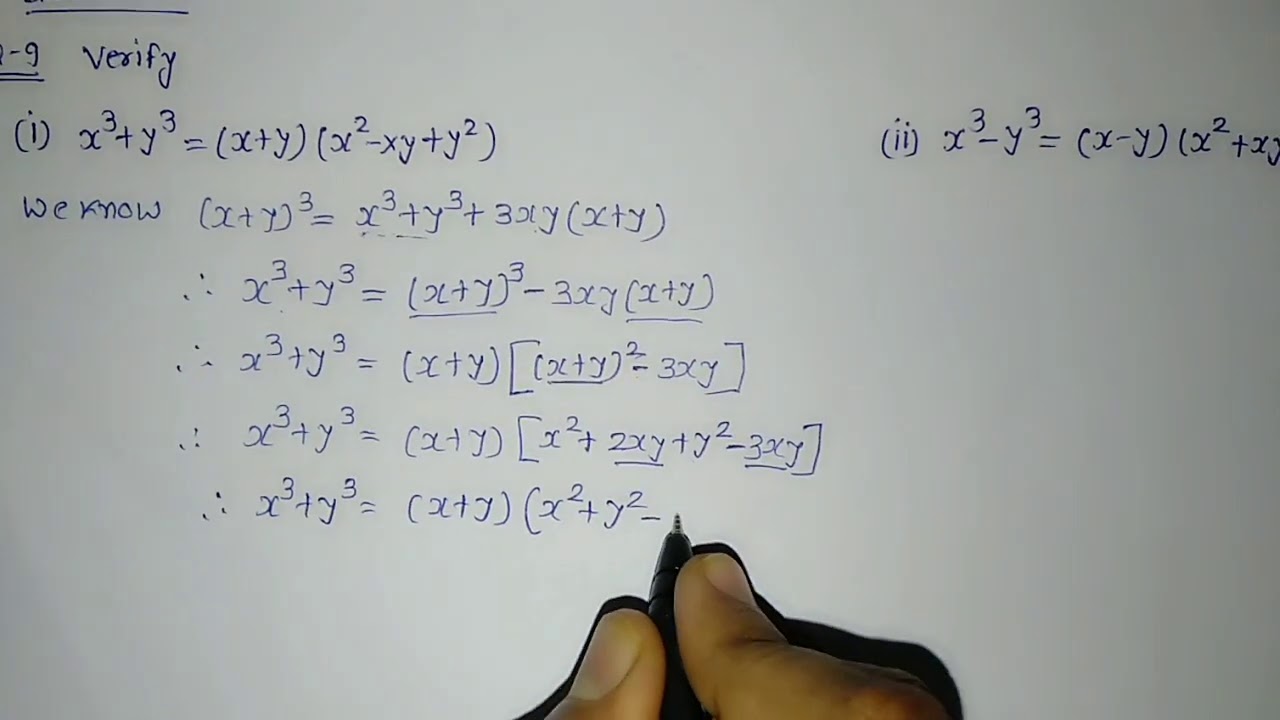 -9 Verify
(i) x³+y³=(x+y)(x²-xy+y²)
(ii) x³-y³=(x-y)(x²+xy
we know (x+y)³= x³+y³+3xy(x+y)
∴ x³+y³=(x+y)³-3xy(x+y)
∴ x³+y³= (x+y)[(x+y)²-3xy]
∴ x³+y³= (x+y)[x²+2xy+y²-3xy]
∴ x³+y³= (x+y)(x²+y²-